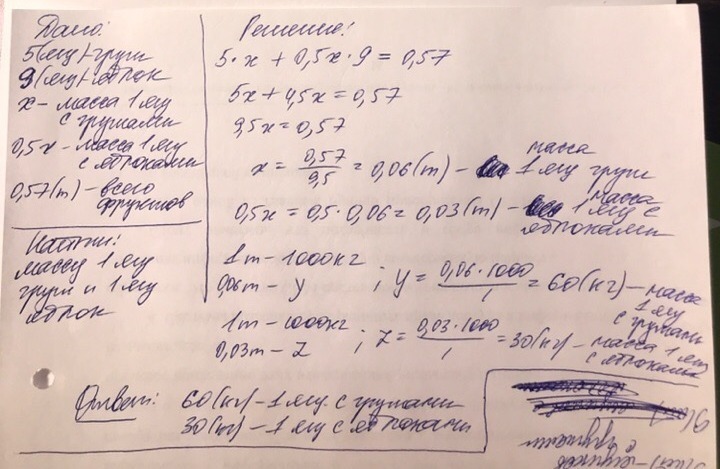 Дано:
5(ящ)-груш
9(ящ)-яблок
x - масса 1 ящ
с грушами
0,5x - масса 1 ящ
с яблоками
0,57(т) - всего
фруктов
Найти:
массу 1 ящ
груш и 1 ящ
яблок
Решение:
5·x + 0,5x·9 = 0,57
5x + 4,5x = 0,57
9,5x = 0,57
x = 0,57/9,5 = 0,06(т) - масса 1 ящ груш
0,5x = 0,5·0,06 = 0,03(т) - масса 1 ящ с
яблоками
1т - 1000кг
0,06т - y ; y = 0,06·1000/1 = 60(кг) - масса
1 ящ
с грушами
1т - 1000кг
0,03т - z ; z = 0,03·1000/1 = 30(кг) - масса 1 ящ
с яблоками
Ответ: 60(кг) - 1 ящ. с грушами
30(кг) - 1 ящ с яблоками